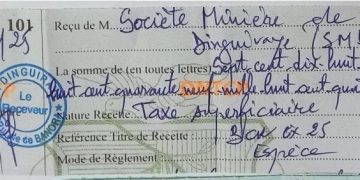 101 Reçu de M. Société Minière de
/25 Dinguiraye (SM
La somme de (en toutes lettres) Sept cent dix huit
huit cent quarante neuf mille huit cent
DINGUIR
Le Receveur
Nature Recette Taxe Superficiaire
Référence Titre de Recette : Bon 01 25
Mode de Règlement : Espèce